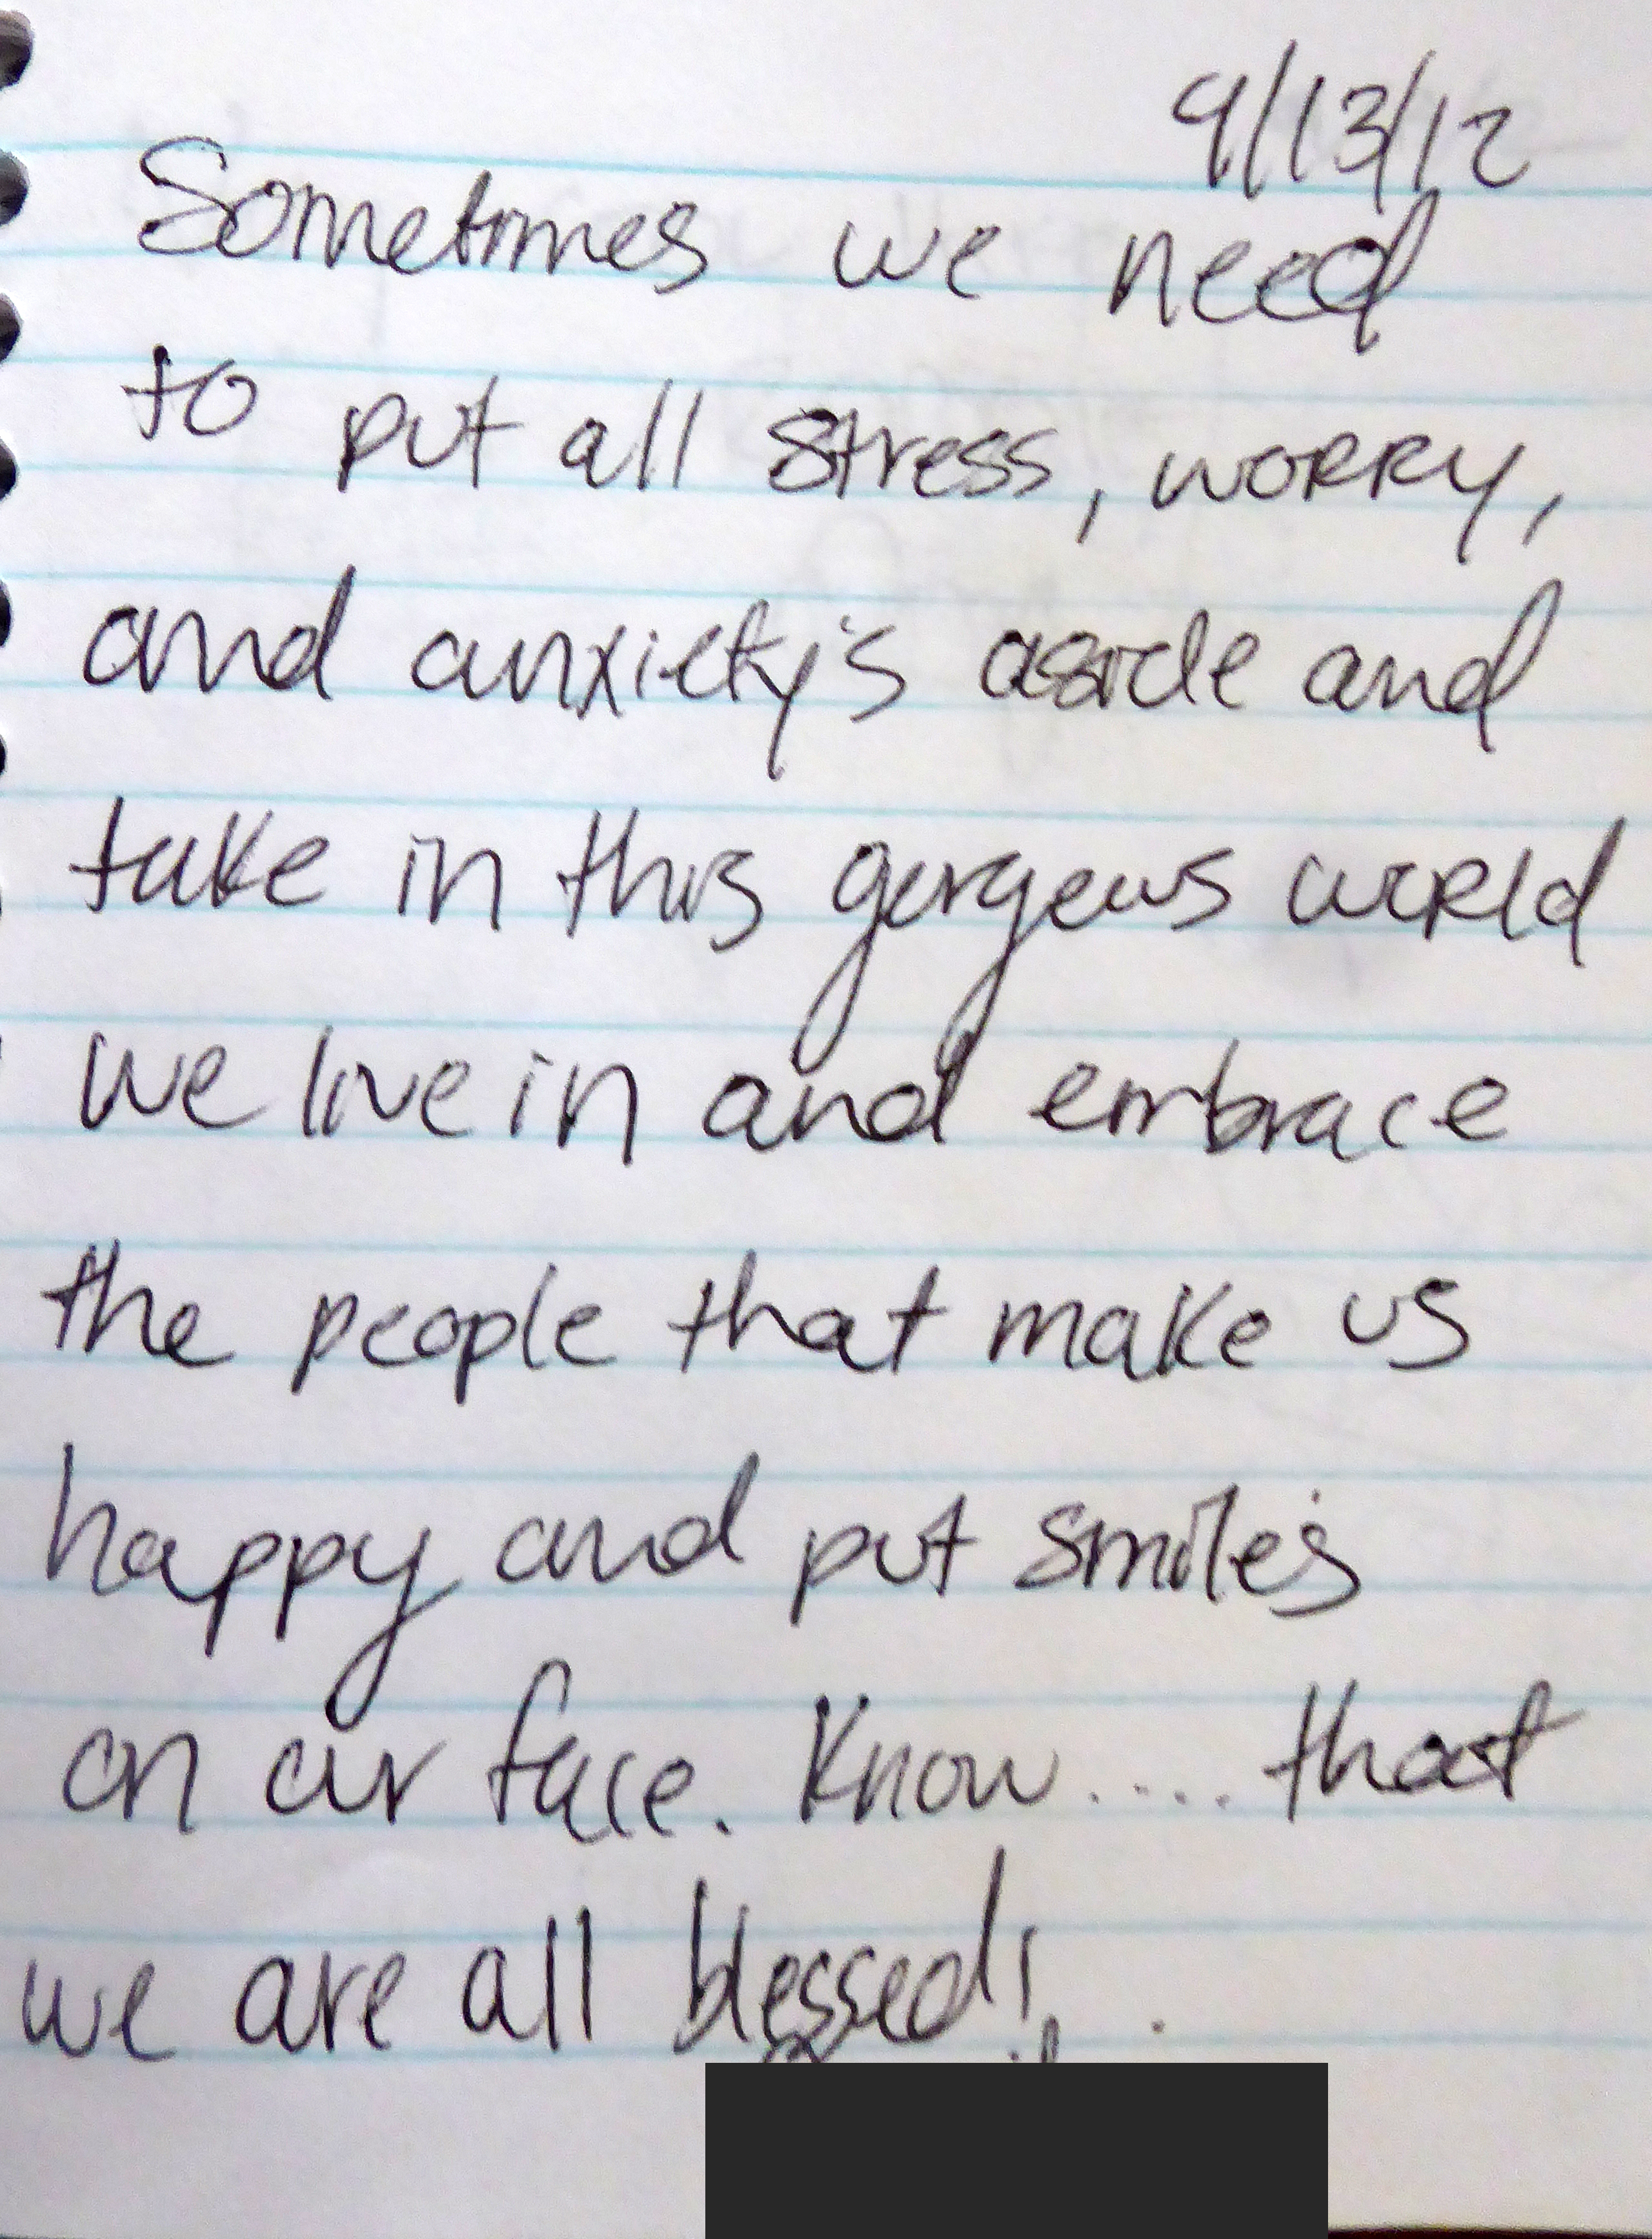 9/13/12
Sometimes we need
to put all stress, worry,
and anxiety's aside and
take in this gorgeous world
we live in and embrace
the people that make us
happy and put smile's
on our face. Know.... that
we are all blessed!